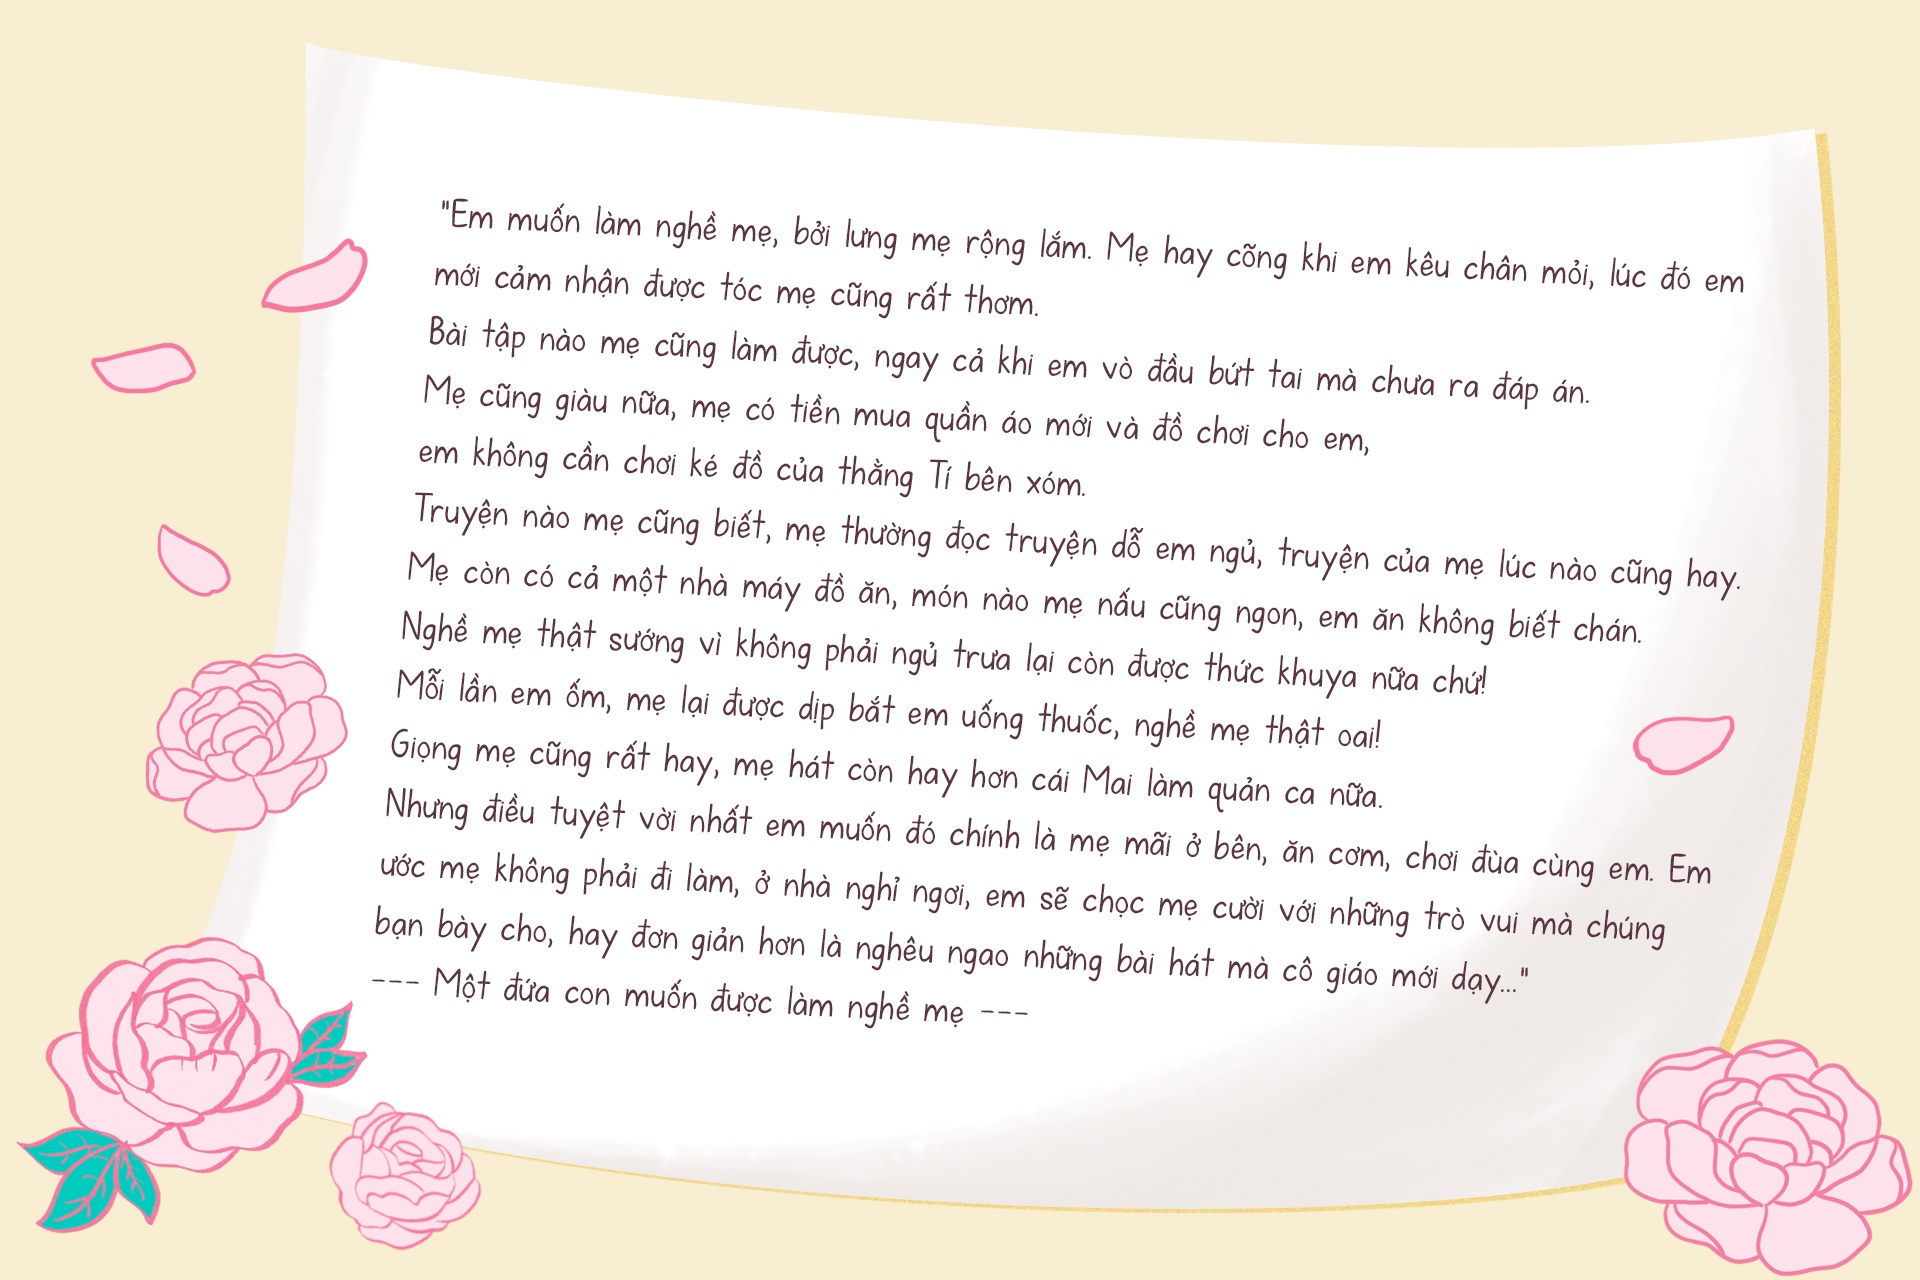 "Em muốn làm nghề mẹ, bởi lưng mẹ rộng lắm. Mẹ hay cõng khi em kêu chân mỏi, lúc đó em
mới cảm nhận được tóc mẹ cũng rất thơm.
Bài tập nào mẹ cũng làm được, ngay cả khi em vò đầu bứt tai mà chưa ra đáp án.
Mẹ cũng giàu nữa, mẹ có tiền mua quần áo mới và đồ chơi cho em,
em không cần chơi ké đồ của thằng Tí bên xóm.
Truyện nào mẹ cũng biết, mẹ thường đọc truyện dỗ em ngủ, truyện của mẹ lúc nào cũng hay.
Mẹ còn có cả một nhà máy đồ ăn, món nào mẹ nấu cũng ngon, em ăn không biết chán.
Nghề mẹ thật sướng vì không phải ngủ trưa lại còn được thức khuya nữa chứ!
Mỗi lần em ốm, mẹ lại được dịp bắt em uống thuốc, nghề mẹ thật oai!
Giọng mẹ cũng rất hay, mẹ hát còn hay hơn cái Mai làm quản ca nữa.
Nhưng điều tuyệt vời nhất em muốn đó chính là mẹ mãi ở bên, ăn cơm, chơi đùa cùng em. Em
ước mẹ không phải đi làm, ở nhà nghỉ ngơi, em sẽ chọc mẹ cười với những trò vui mà chúng
bạn bày cho, hay đơn giản hơn là nghêu ngao những bài hát mà cô giáo mới dạy..."
--- Một đứa con muốn được làm nghề mẹ ---